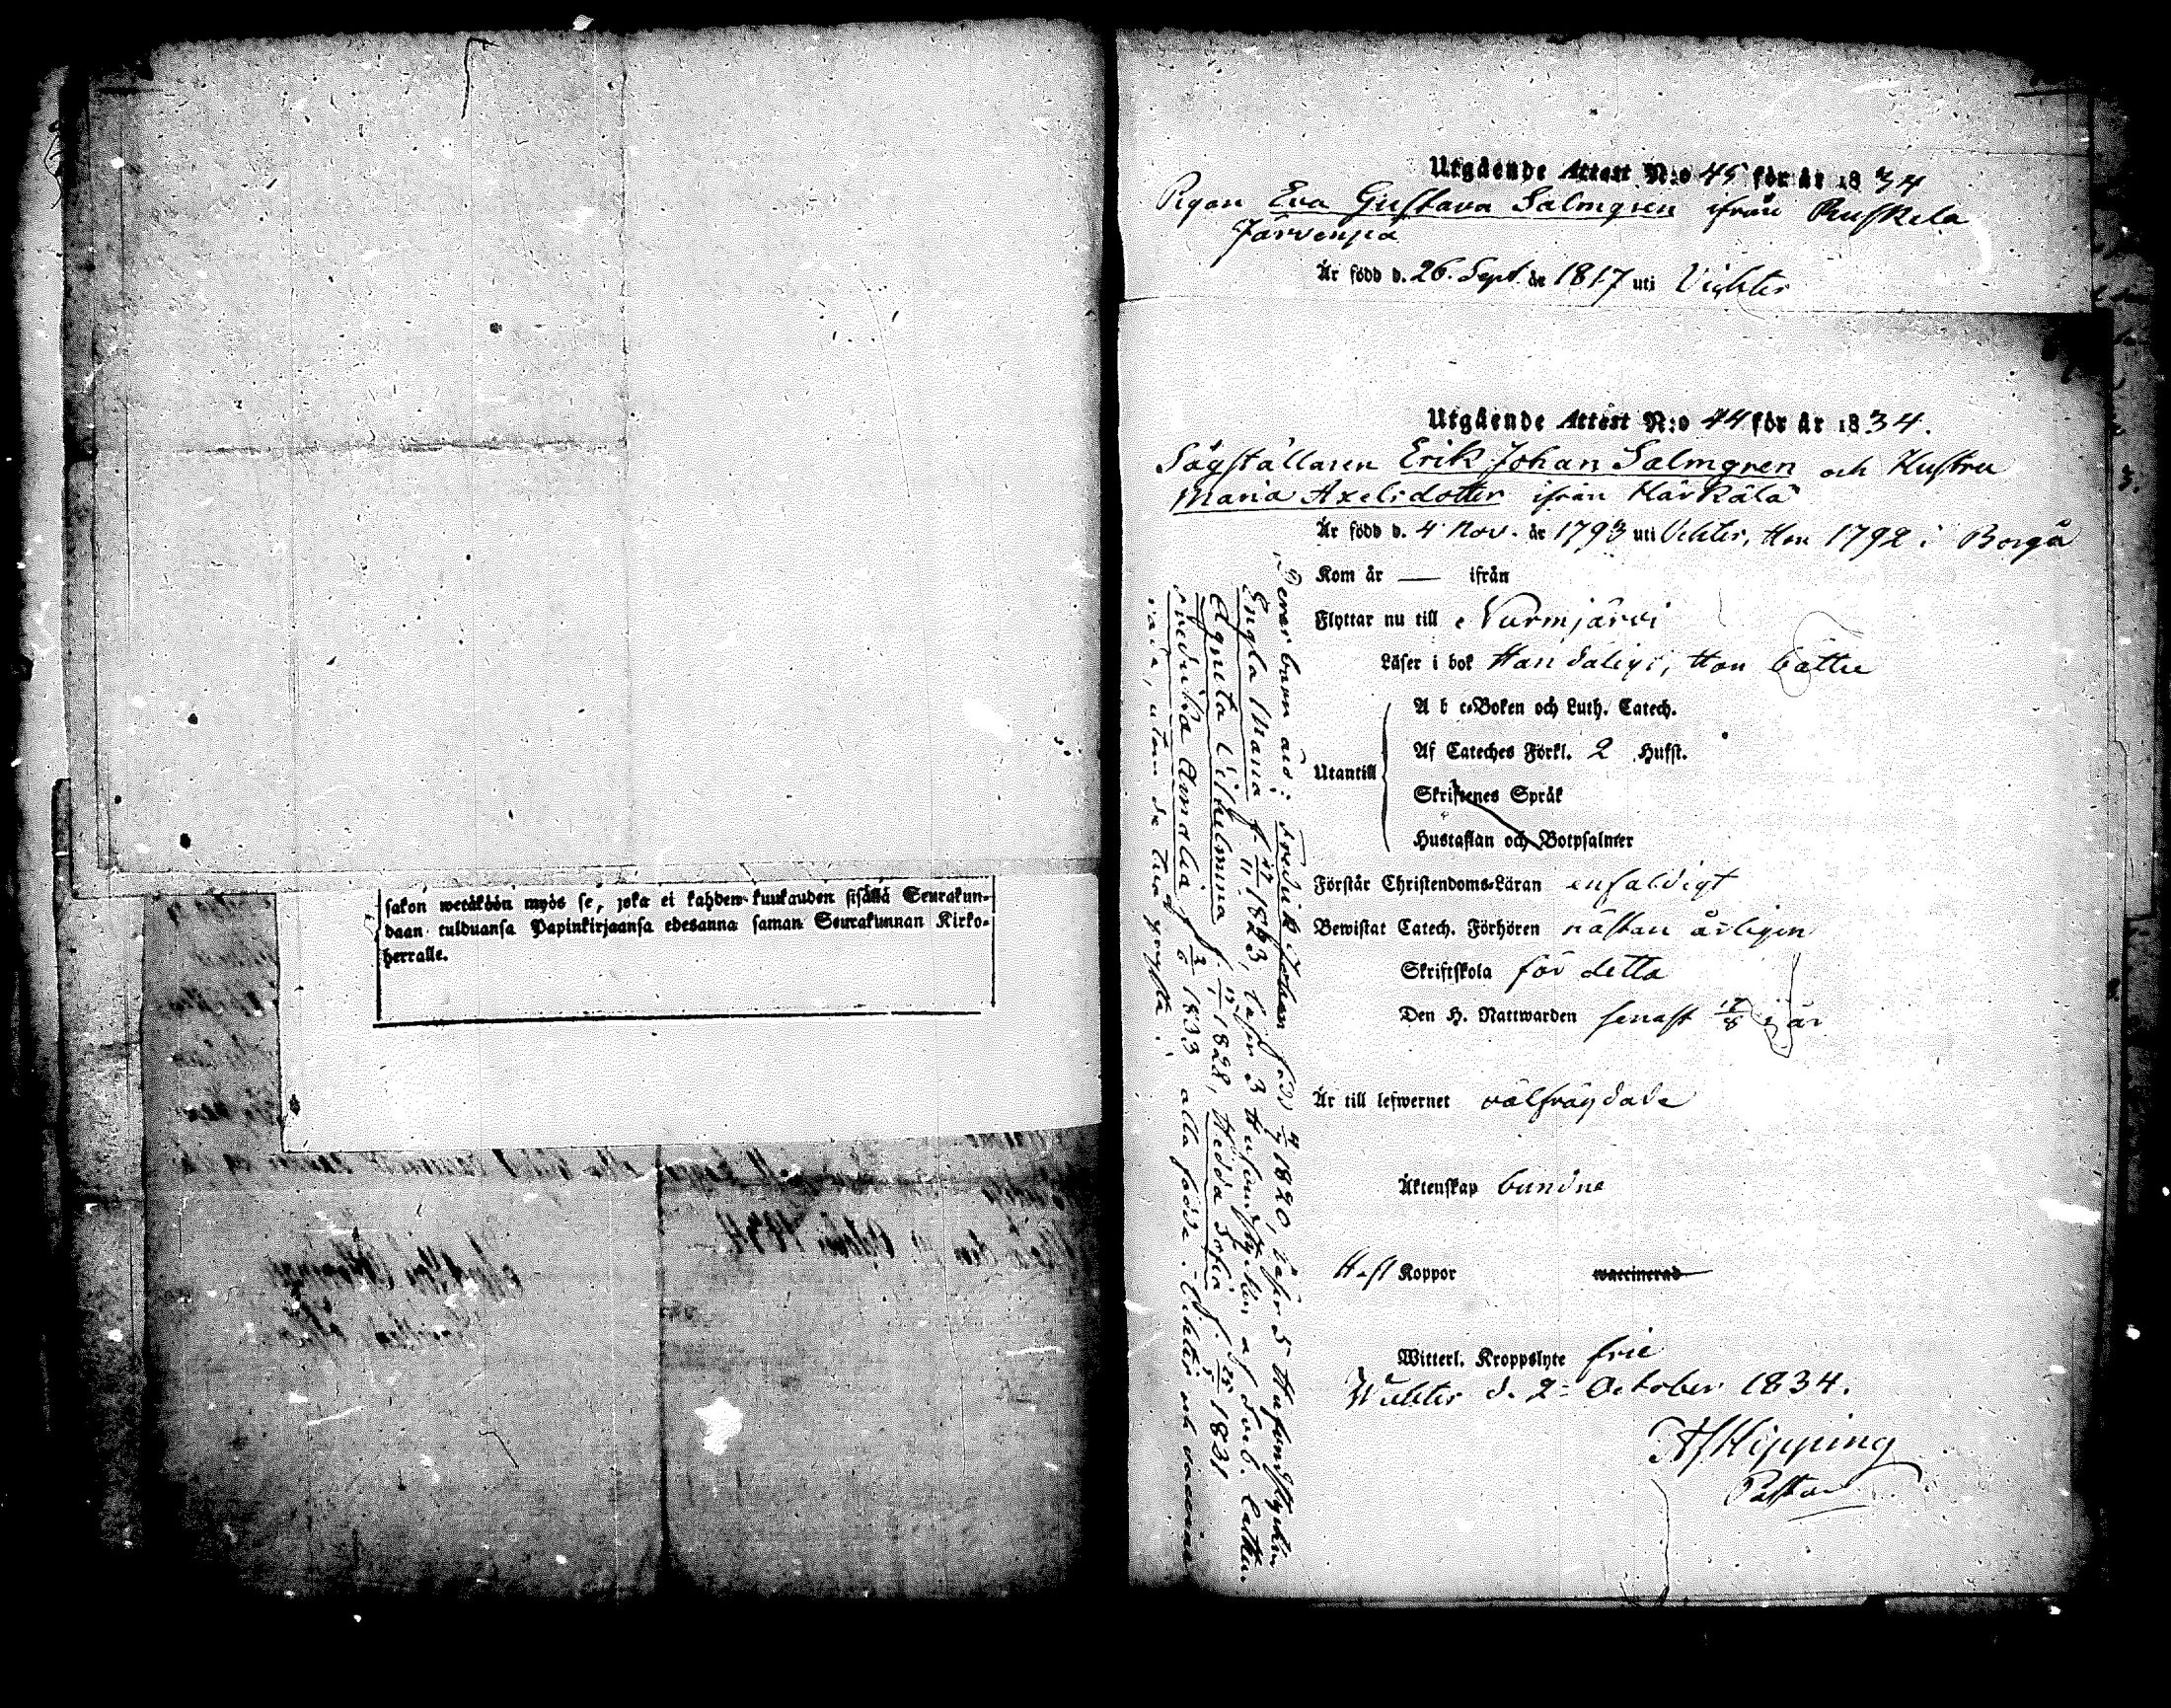 sakon wetäköön myös se, joka ei kahden kuukauden sisällä Seurakun-
daan tulduansa Papinkirjaansa edesanna saman Seurakunnan Kirko-
herralle.
Utgående Attest N:o 45 för år 1834
Pigan Eva Gustava Salmgren ifrån Ruskela
Järvenpä
Är född d. 26. Sept. år 1817 uti Vichtis
Utgående Attest N:o 44 för år 1834.
Sågställaren Erik Johan Salmgren och Hustru
Maria Axelsdotter ifrån Härkälä
Är född d. 4 Nov. år 1793 uti Vichtis, Hon 1792 i Borgå
Kom år — ifrån
Flyttar nu till Nurmijärvi
Läser i bok Han dåligt, Hon bättre
Utantill
A b c-Boken och Luth. Catech.
Af Cateches Förkl. 2 Hufst.
Skriftenes Språk
Hustaflan och Botpsalmer
Förstår Christendoms-Läran enfaldigt
Bewistat Catech. Förhören nästan årligen
Skriftskola för detta
Den H. Nattwarden senast 17/8 i år
Är till lefwernet välfrägdade
Äktenskap bundne
Haft Koppor waccinerad
Witterl. Kroppslyte frie
Wichtis d. 2 October 1834.
Hipping
Pastor
Deras barn äro: Fredrik Johan född 4/7 1820, läser 5 Hufvudstycken
Engla Maria f. 17/11 1823, läser 3 Hufvudstycken af Sveb. Cathe.
Agneta Vilhelmina f. 1828, Hedda Sofia f. 1831
Fredrika Amalia f. 3/6 1833 alla födde i Vichtis och vaccine
rade, utan de två yngsta.